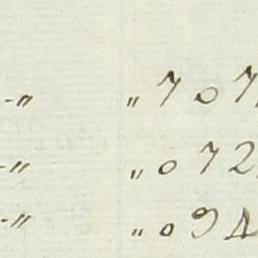 -〃 〃 7 0 7
-〃 〃 0 7 2
-〃 〃 0 9 4